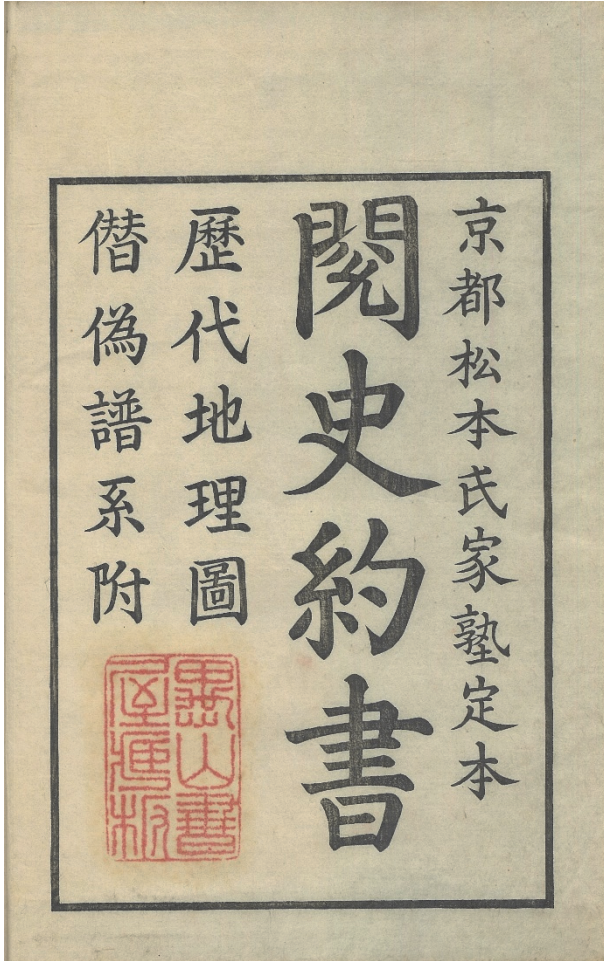 京都松本氏家塾定本
閱史約書
歷代地理圖
僣偽譜系附
愚山書
屋藏板